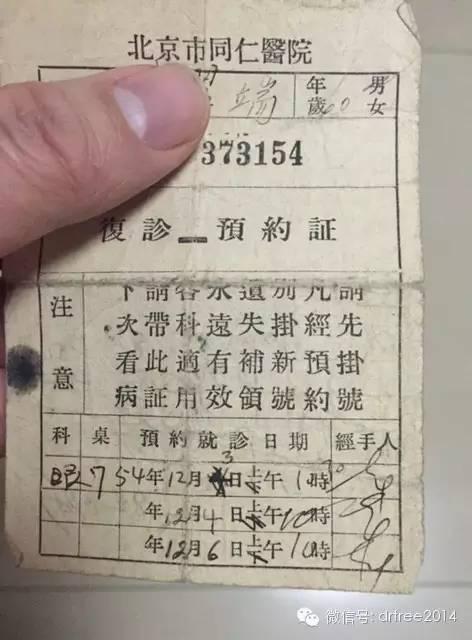 北京市同仁醫院
端
年歲 60 男女
373154
復診 預約証
注意
下次看病
請帶此証
各科適用
永遠有效
遺失補領
別掛新號
凡經預約
請先掛號
科 桌 預約就診日期 經手人
眼 7 54年12月3日上午10時30
年12月4日上午10時
年12月6日上午10時
微信号: drtree2014